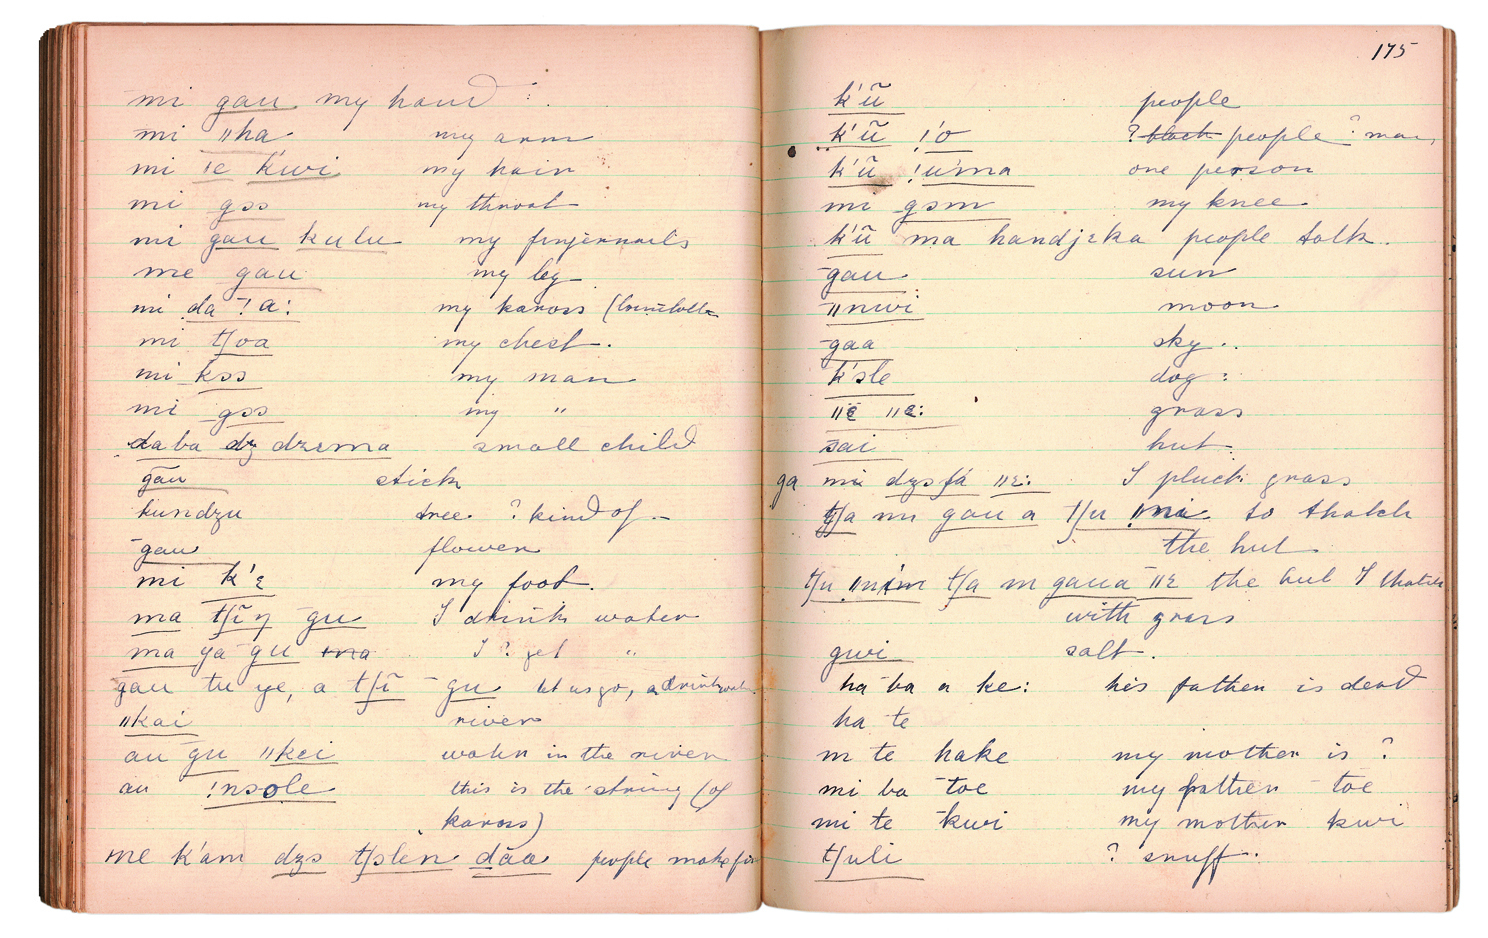 mi gau my hand
mi ǁha my arm
mi ǀe k'wi my hair
mi gɔɔ my throat
mi gau kulu my fingernails
me gau my leg
mi da ǃa: my kaross
mi tʃoa my chest.
mi kɔɔ my man
mi gɔɔ my "
daba dʒ dzɛma small child
gāu stick
kundzu tree ? kind of
gau flower
mi k'ɛ my foot.
ma tʃĩŋ gu I drink water
ma ya gu ma I ? get "
gau tu ye, a tʃĩ gu let us go, a drink wat.
ǁkai river
au gu ǁkei water in the river
au ǃnɔole this is the string (of
kaross)
me k'am dzɔ tʃɔlen dāa people make fire
175
k'ũ people
k'ũ ǃ'o ? black people ? man
k'ũ ǃu'ma one person
mi gɔm my knee
k'ũ ma handjɛka people talk.
gau sun
ǁnwi moon
gaa sky..
k'ɔle dog:
ǁɛ ǁɛ: grass
sai hut.
ga mi dzɔfá ǁɛ: I pluck grass
tʃa mi gau a tʃu ǁna to thatch
the hut.
tʃu ǁnim tʃa m gaua ǁɛ the hut I thatch
with grass
gwi salt.
ha ba a ke: his father is dead
ha te
m te hake my mother is ?
mi ba toe my father toe
mi te kwi my mother kwi
tʃuli ? snuff.